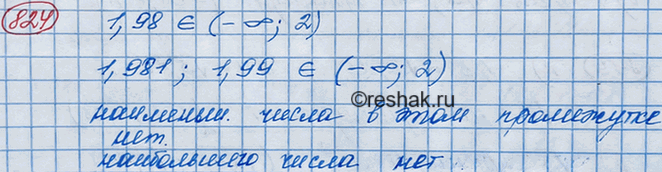 824
1,98 ∈ (-∞; 2)
1,981; 1,99 ∈ (-∞; 2)
©reshak.ru
наименьш. числа в этом промежутке
нет.
наибольшего числа нет